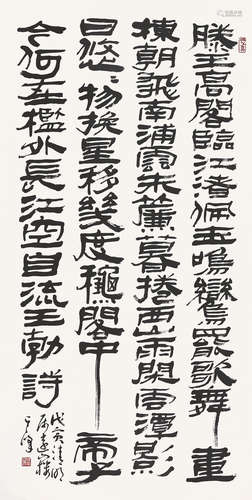 滕王高閣臨江渚佩玉鳴鸞罷歌舞畫
棟朝飛南浦雲朱簾暮捲西山雨閑雲潭影
日悠〻物換星移幾度穐閣中帝子
今何在檻外長江空自流王勃詩
戊寅清明